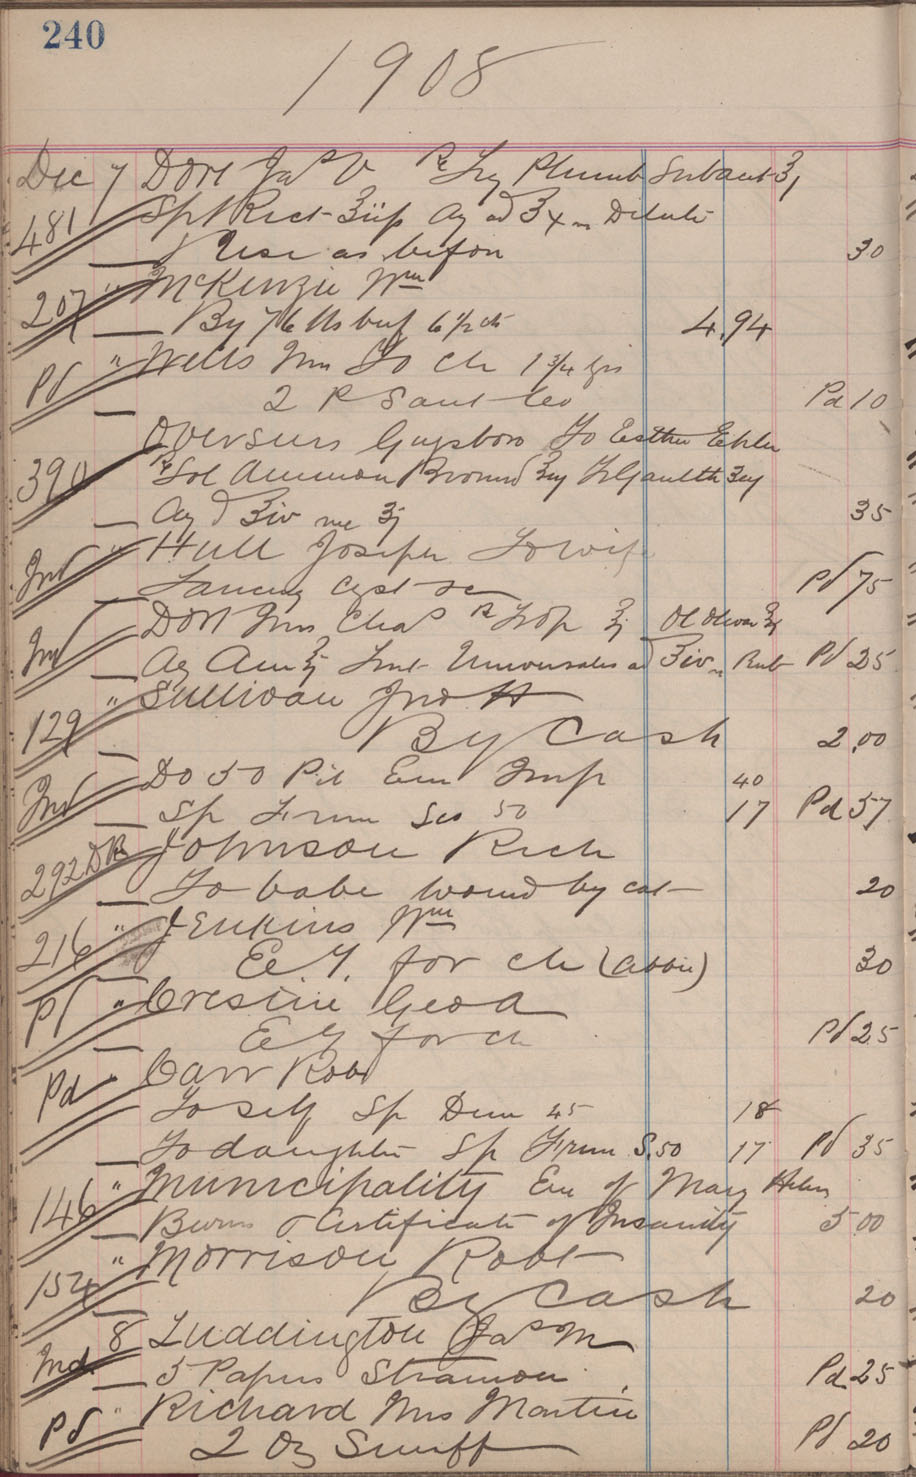 240
1908
Dec 7 Dort Jas V Rx Liq Plumb Subact ʒj
481 Spt Rect ʒiij Aq ad ʒx m Dilute
Use as before 30
207 " McKenzie Wm
By 76 lbs beef 6 1/2 cts 4.94
Pd " Wells Mrs To ch 1 3/4 grs
2 P Sant Pd 10
Overseers Guysboro To Esther Ehler
390 Rx Sol Ammon Bromid To Gaulth
Aq ad ʒiv 35
Ind " Hull Joseph To wife
Lancing cyst Pd 75
Dort Mrs Chas Rx Ol Olivae
Ind Aq Am Lint ad ʒiv m Rub Pd 25
" Sullivan Jno H
129 By Cash 2.00
Do 50 Pil Imp 40
Ind Sp 50 17 Pd 57
292 DB Johnson Rich
To babe wound by cat 20
" Jenkins Wm
216 E. Y. for ch (Abbie) 30
Pd " Crestine Geo A
E Y for ch Pd 25
Pd " Carr Robt
To self Sp 45 18
To daughter Sp S. 50 17 Pd 35
" Municipality Exn of Mary Helen
146 Burns & Certificate of Insanity 5 00
" Morrison Robt
154 By Cash 20
8 Luddington Jas M
Ind. 5 Papers Stramon Pd 25
" Richard Mrs Martin
Pd 2 Oz Snuff Pd 20